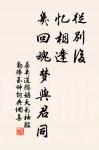 從別後
憶相逢
幾回魂夢與君同
晏幾道鷓鴣天彩袖殷
勤捧玉鍾